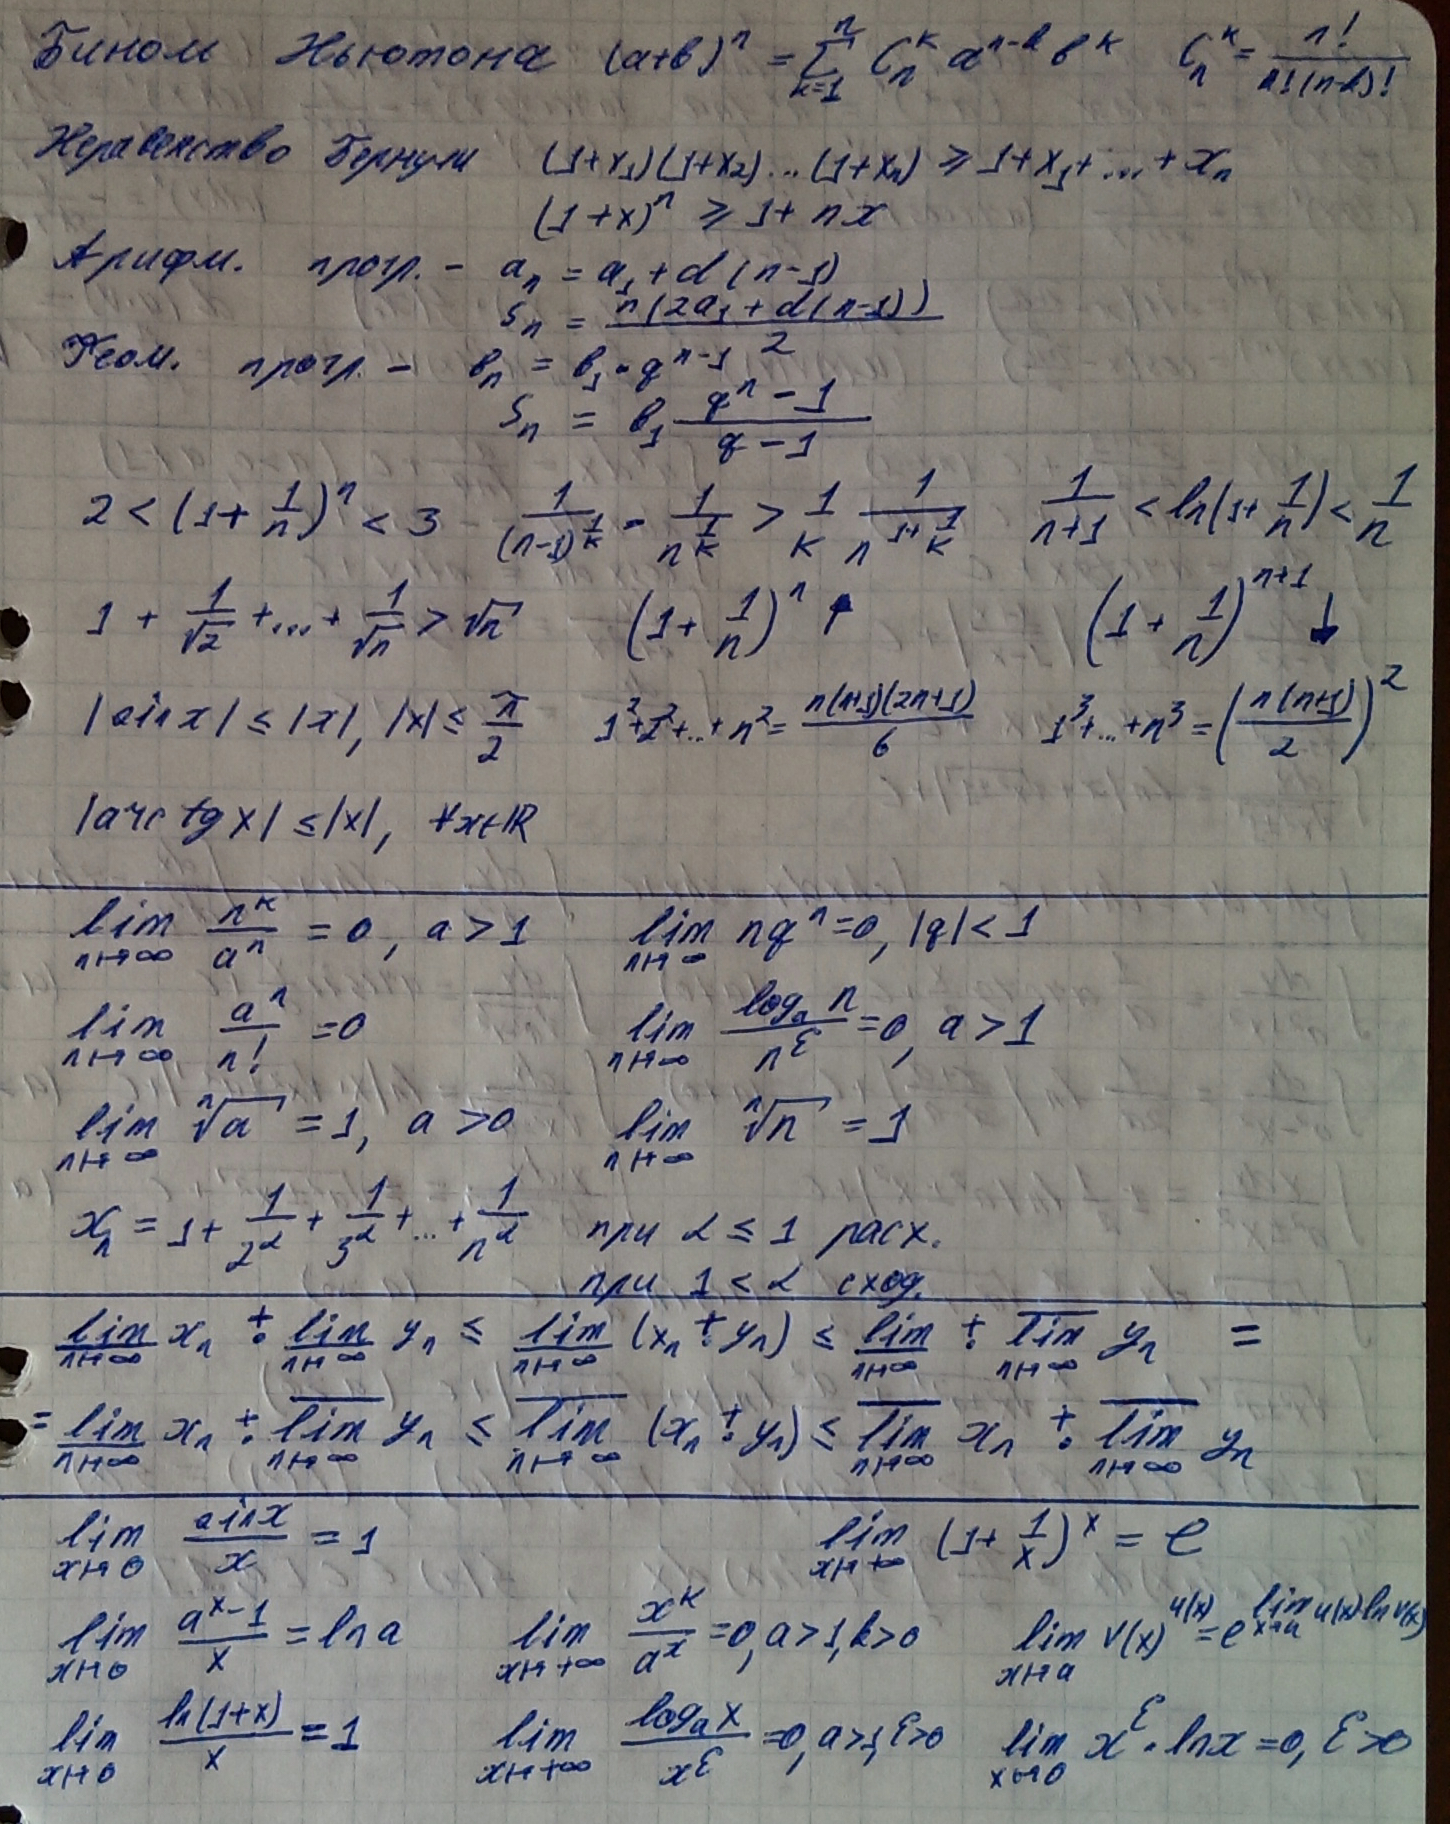 Бином Ньютона (a+b)^n = ∑_{k=1}^{n} C_n^k a^{n-k} b^k   C_n^k = n!/(k!(n-k)!)
Неравенство Бернули (1+x_1)(1+x_2)...(1+x_n) ≥ 1+x_1+...+x_n
(1+x)^n ≥ 1+nx
Арифм. прогр. - a_n = a_1 + d(n-1)
S_n = n(2a_1 + d(n-1))/2
Геом. прогр. - b_n = b_1 · q^{n-1}
S_n = b_1 (q^n - 1)/(q - 1)
2 < (1+1/n)^n < 3   1/(n-1)^{1/k} - 1/n^{1/k} > 1/k 1/n^{1+1/k}   1/(n+1) < ln(1+1/n) < 1/n
1 + 1/√2 +...+ 1/√n > √n   (1+1/n)^n ↑   (1+1/n)^{n+1} ↓
|sin x| ≤ |x|, |x| ≤ π/2   1^2+2^2+...+n^2 = n(n+1)(2n+1)/6   1^3+...+n^3 = (n(n+1)/2)^2
|arctg x| ≤ |x|, ∀x∈ℝ
lim_{n→∞} n^k/a^n = 0, a > 1   lim_{n→∞} nq^n = 0, |q| < 1
lim_{n→∞} a^n/n! = 0   lim_{n→∞} log_a n/n^ε = 0, a > 1
lim_{n→∞} ⁿ√a = 1, a > 0   lim_{n→∞} ⁿ√n = 1
x_n = 1 + 1/2^α + 1/3^α +...+ 1/n^α   при α ≤ 1 расх.
при 1 < α сход.
\underline{lim}_{n→∞} x_n ∔ \underline{lim}_{n→∞} y_n ≤ \underline{lim}_{n→∞} (x_n ∔ y_n) ≤ \underline{lim}_{n→∞} ∔ \overline{lim}_{n→∞} y_n =
= \underline{lim}_{n→∞} x_n ∔ \overline{lim}_{n→∞} y_n ≤ \overline{lim}_{n→∞} (x_n ∔ y_n) ≤ \overline{lim}_{n→∞} x_n ∔ \overline{lim}_{n→∞} y_n
lim_{x→0} sin x/x = 1   lim_{x→+∞} (1+1/x)^x = e
lim_{x→0} (a^x-1)/x = ln a   lim_{x→+∞} x^k/a^x = 0, a>1, k>0   lim_{x→a} v(x)^{u(x)} = e^{lim_{x→a} u(x) ln v(x)}
lim_{x→0} ln(1+x)/x = 1   lim_{x→+∞} log_a x/x^ε = 0, a>1, ε>0   lim_{x→0} x^ε · ln x = 0, ε>0